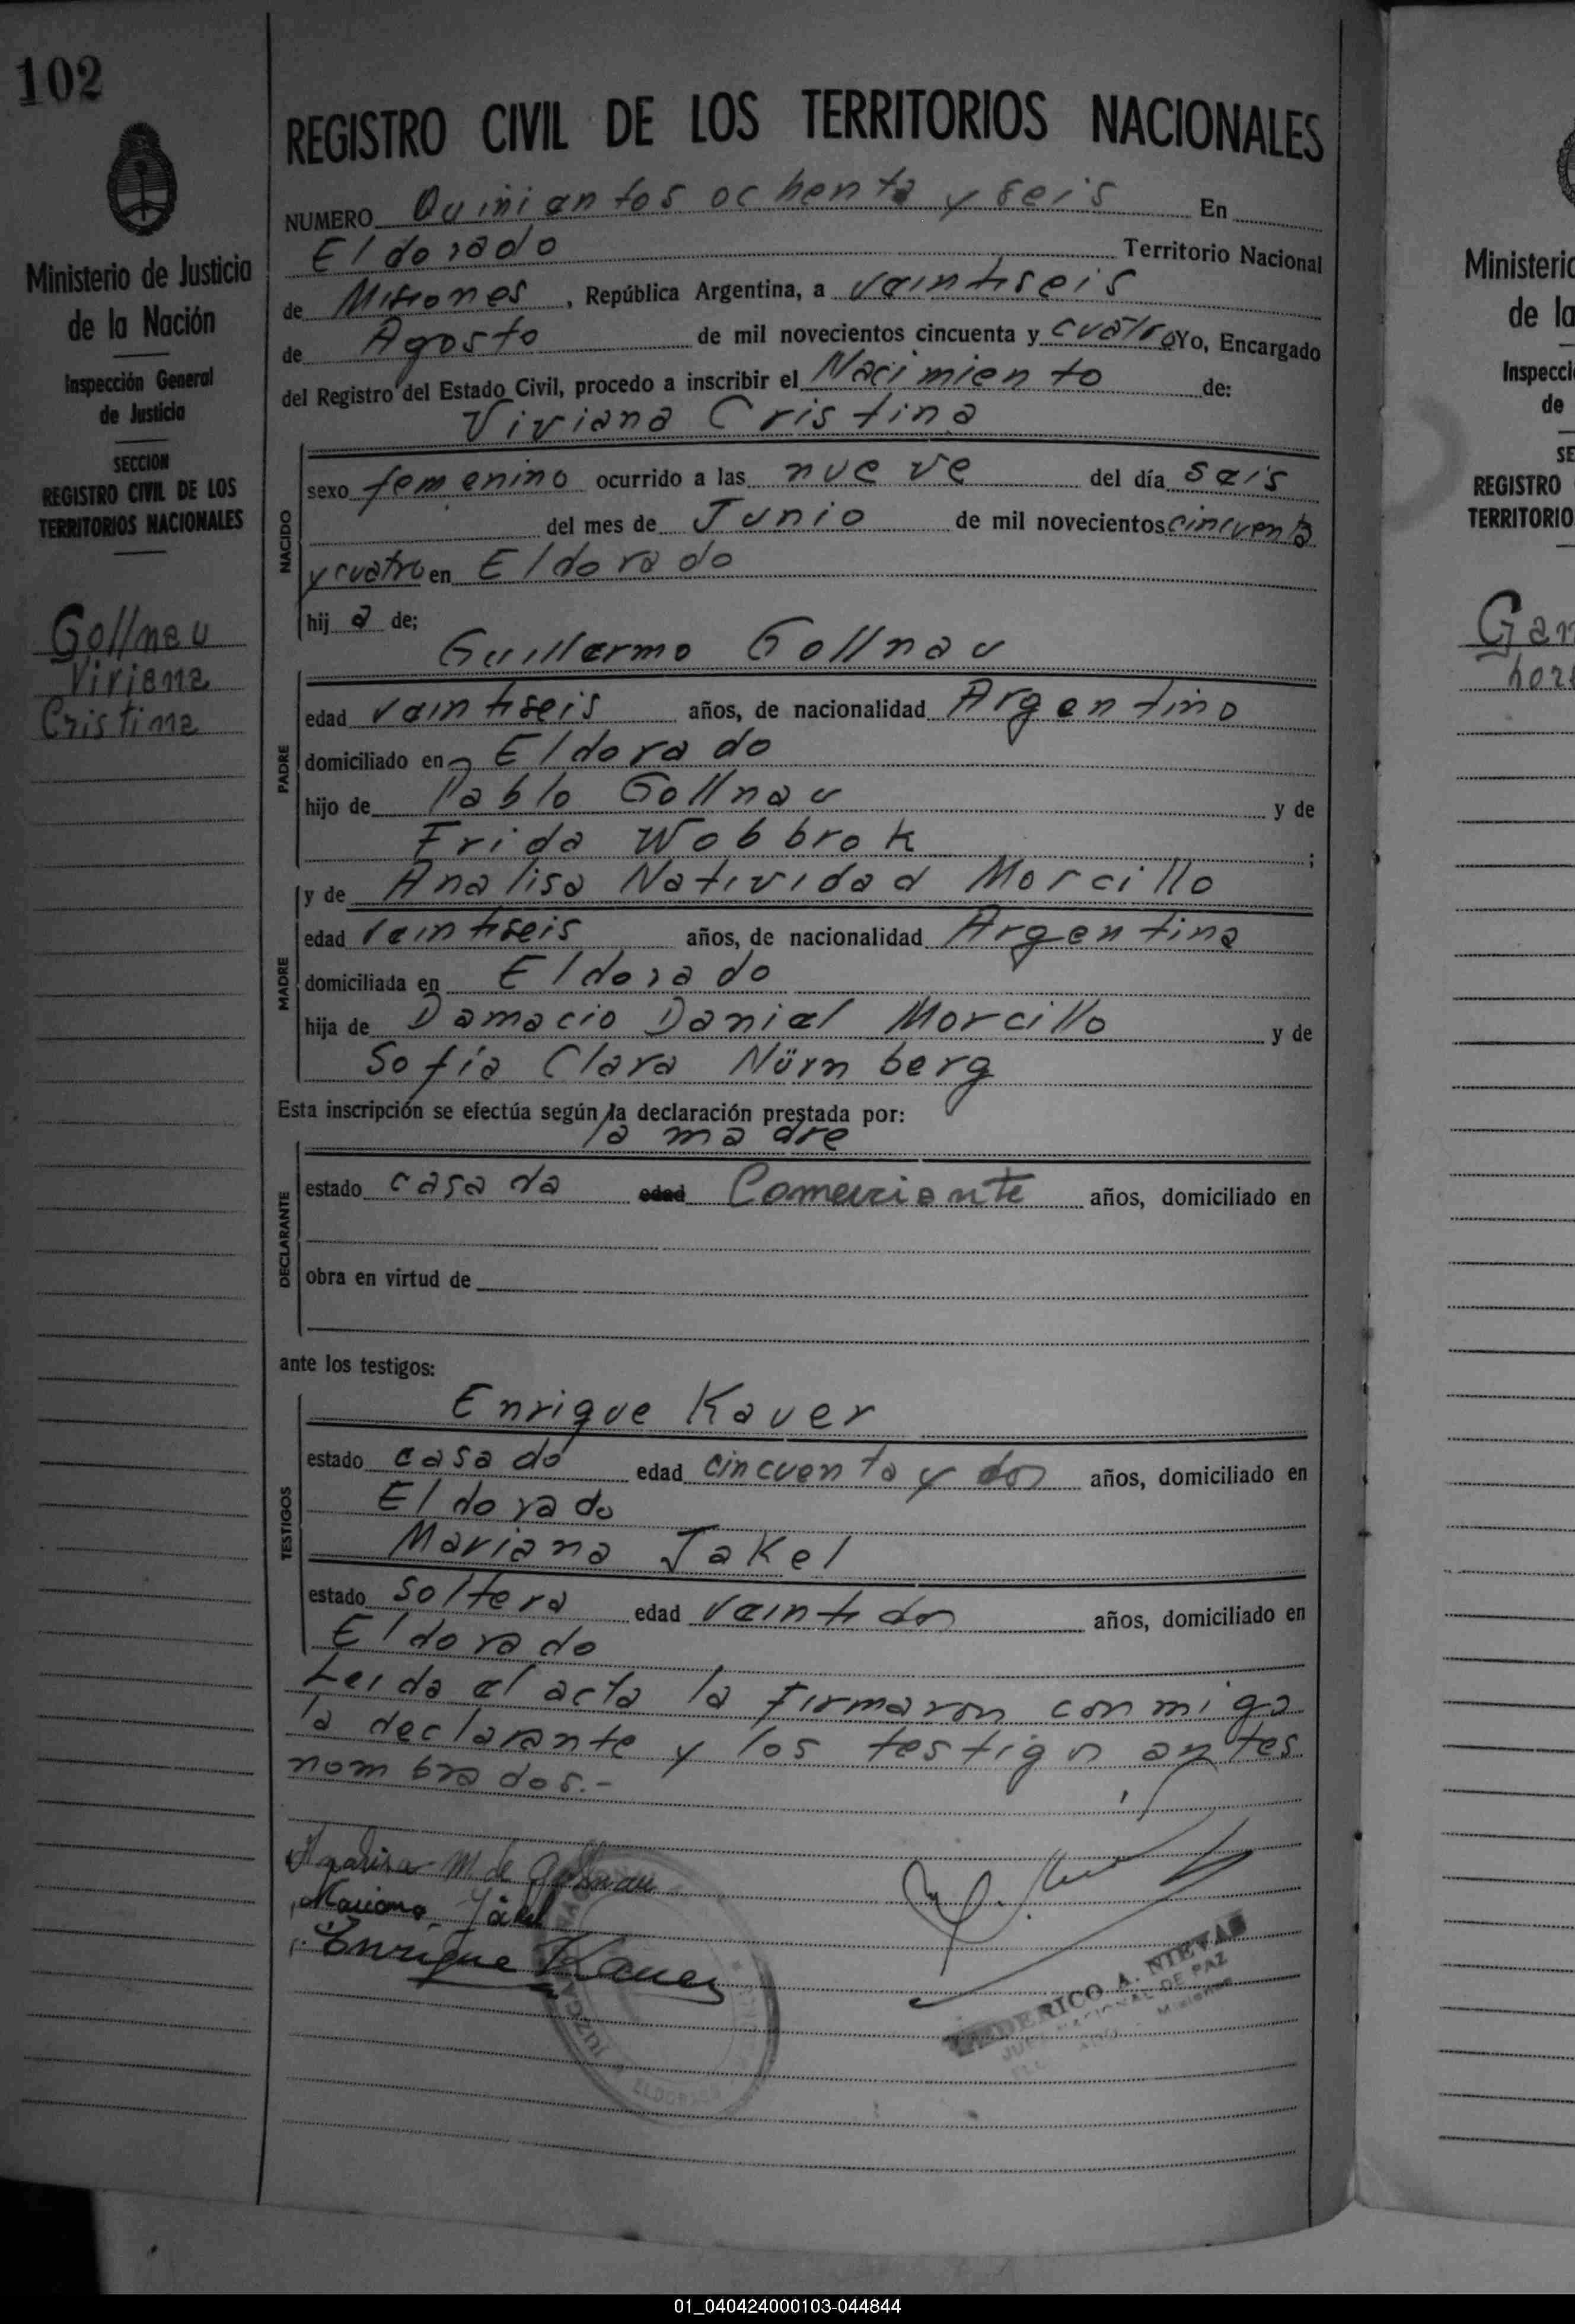 102
Ministerio de Justicia
de la Nación
Inspección General
de Justicia
SECCION
REGISTRO CIVIL DE LOS
TERRITORIOS NACIONALES
Gollnau
Viviana
Cristina
REGISTRO CIVIL DE LOS TERRITORIOS NACIONALES
NUMERO Quinientos ochenta y seis En
Eldorado Territorio Nacional
de Misiones, República Argentina, a veintiseis
de Agosto de mil novecientos cincuenta y cuatro Yo, Encargado
del Registro del Estado Civil, procedo a inscribir el Nacimiento de:
Viviana Cristina
NACIDO
sexo femenino ocurrido a las nueve del día seis
del mes de Junio de mil novecientos cincuenta
y cuatro en Eldorado
hij a de;
Guillermo Gollnau
PADRE
edad veintiseis años, de nacionalidad Argentino
domiciliado en Eldorado
hijo de Pablo Gollnau y de
Frida Wobbrok ;
y de Analisa Natividad Morcillo
MADRE
edad veintiseis años, de nacionalidad Argentina
domiciliada en Eldorado
hija de Damacio Daniel Morcillo y de
Sofía Clara Nürnberg
Esta inscripción se efectúa según la declaración prestada por:
la madre
DECLARANTE
estado casada edad Comerciante años, domiciliado en
obra en virtud de
ante los testigos:
TESTIGOS
Enrique Kauer
estado casado edad cincuenta y dos años, domiciliado en
Eldorado
Mariana Jakel
estado soltera edad veintidos años, domiciliado en
Eldorado
Leida el acta la firmaron conmigo
la declarante y los testigos antes
nombrados.-
M. de Gollnau
Mariana Jäkel
Enrique Kauer
FEDERICO A. NIEVAS
JUEZ NACIONAL DE PAZ
Misiones
JUZGADO
ELDORADO
Ministerio
de la
Inspecci
de
SE
REGISTRO
TERRITORIO
01_040424000103-044844